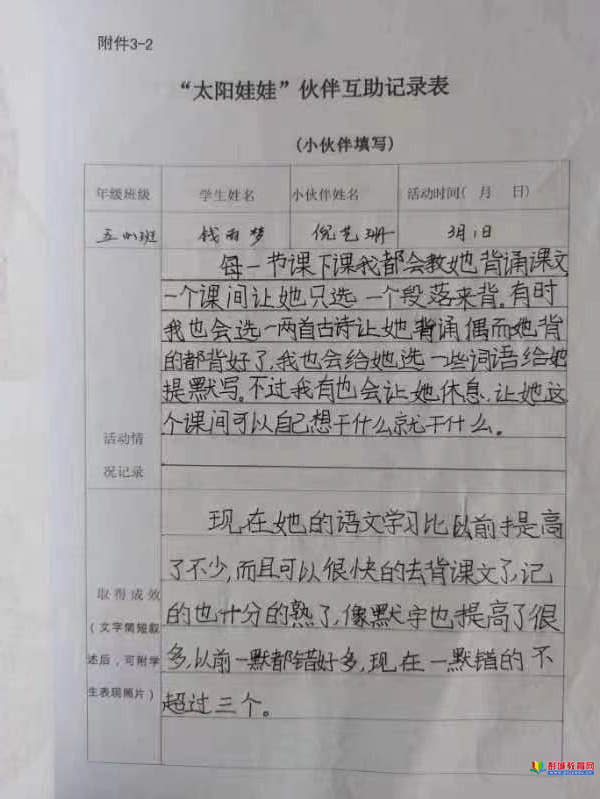 附件3-2
“太阳娃娃”伙伴互助记录表
(小伙伴填写)
年级班级 学生姓名 小伙伴姓名 活动时间( 月 日)
五(1)班 钱雨梦 倪艺珊 3月1日
每一节课下课我都会教她背诵课文
一个课间让她只选一个段落来背。有时
我也会选一两首古诗让她背诵偶而她背
的都背好了,我也会给她选一些词语给她
提默写。不过我有也会让她休息,让她这
个课间可以自己想干什么就干什么。
活动情
况记录
现在她的语文学习比以前提高
了不少,而且可以很快的去背课文了,记
的也十分的熟了,像默字也提高了很
多,以前一默都错好多,现在一默错的不
超过三个。
取得成效
(文字简短叙
述后,可附学
生表现照片)
彭城教育网